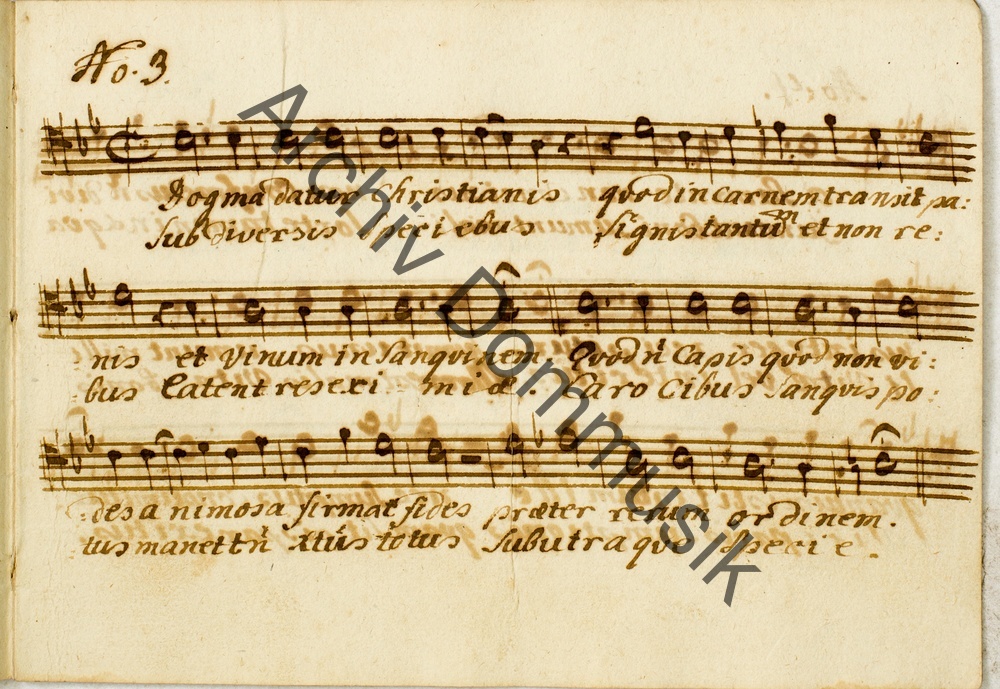 No. 3.
Dogma datur Christianis quod in carnem transit pa:
Sub diversis Speci ebus Signis tantũ et non re:
nis et vinum in Sanguinem. Quod ñ Capis quod non vi:
bus Latent res exi mi æ. Caro Cibus Sanguis po:
des a nimosa firmat fides præter rerum ordinem.
tus manet tñ Xtũs totus Sub utra que Specie.
Archiv Dommusik